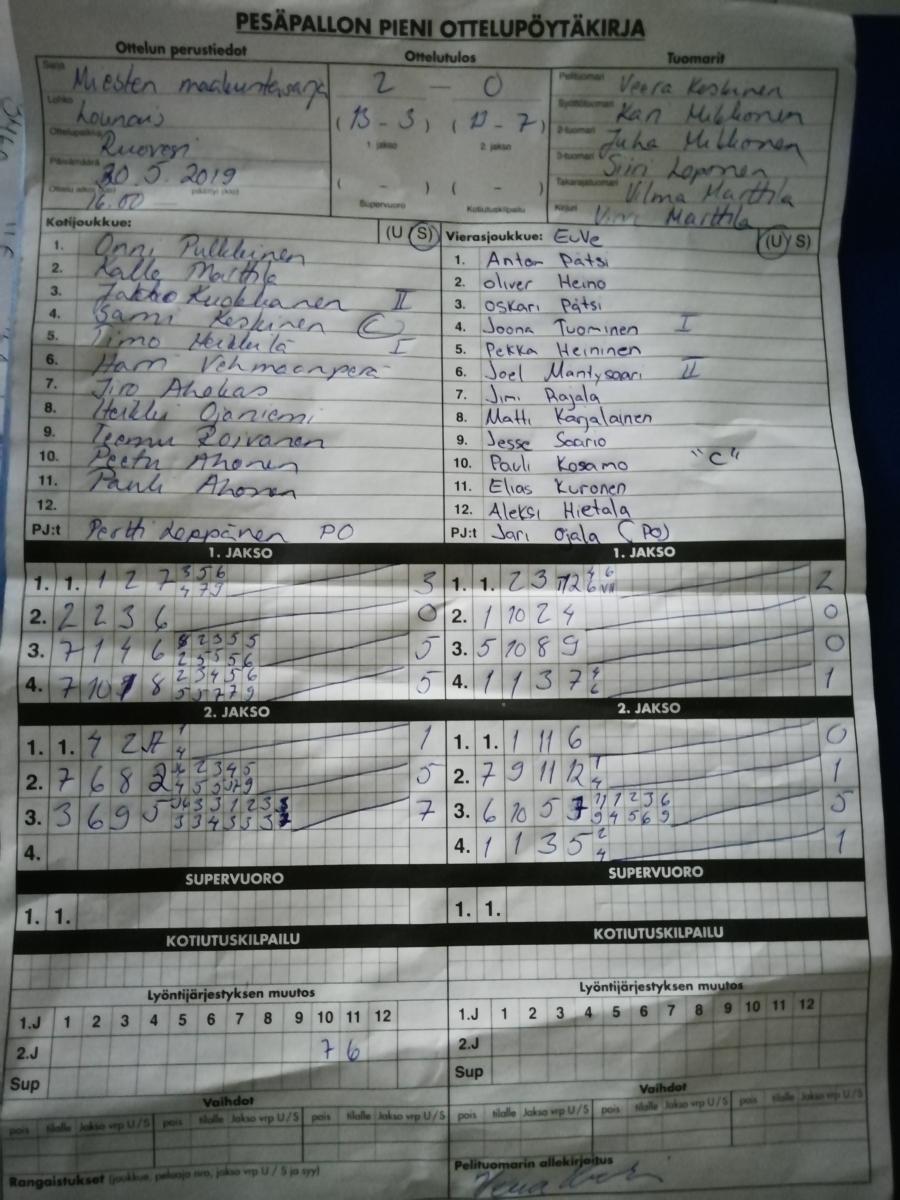 PESÄPALLON PIENI OTTELUPÖYTÄKIRJA
Ottelun perustiedot Ottelutulos Tuomarit
Sarja Miesten maakuntasarja 2 - 0 Pelituomari Veera Keskinen
Lohko Lounais (13 - 3) (13 - 7) Syöttötuomari Kari Mikkonen
Ottelupaikka Ruovesi 1. jakso 2. jakso 2-tuomari Juha Mikkonen
Päivämäärä 30.5.2019 3-tuomari Siiri Leponen
16.00 ( - ) ( - ) Takarajatuomari Vilma Marttila
Supervuoro Kotiutuskilpailu Kirjuri Marttila
Kotijoukkue: (U S) Vierasjoukkue: EuVe (U S)
1. Onni Pulkkinen 1. Anton Pätsi
2. Kalle Marttila 2. Oliver Heino
3. Jakko Kuokkanen II 3. Oskari Pätsi
4. Sami Keskinen C 4. Joona Tuominen I
5. Timo Heikkilä I 5. Pekka Heininen
6. Harri Vehmaanperä 6. Joel Mäntysaari II
7. Jiro Ahokas 7. Jimi Rajala
8. Heikki Ojaniemi 8. Matti Karjalainen
9. Teemu Roivanen 9. Jesse Saario
10. Peetu Ahonen 10. Pauli Kosamo "C"
11. Pauli Ahonen 11. Elias Kuronen
12. 12. Aleksi Hietala
PJ:t Pertti Leppänen PO PJ:t Jari Ojala (PO)
1. JAKSO 1. JAKSO
1. 1. 1 2 7 3 5 6 4 7 9 3 1. 1. 2 3 2
2. 2 2 3 6 0 2. 1 10 2 4 0
3. 7 1 4 6 5 3. 5 10 8 9 0
4. 7 10 8 2 3 4 5 6 5 5 7 7 9 5 4. 1 1 3 7 1
2. JAKSO 2. JAKSO
1. 1. 4 2 1 1. 1. 1 11 6 0
2. 7 6 8 2 5 2. 7 9 11 12 1 4 1
3. 3 6 9 5 7 3. 6 10 5 11 1 2 3 6 9 4 5 6 9 5
4. 4. 1 1 3 5 2 4 1
SUPERVUORO SUPERVUORO
1. 1. 1. 1.
KOTIUTUSKILPAILU KOTIUTUSKILPAILU
Lyöntijärjestyksen muutos Lyöntijärjestyksen muutos
1.J 1 2 3 4 5 6 7 8 9 10 11 12 1.J 1 2 3 4 5 6 7 8 9 10 11 12
2.J 7 6 2.J
Sup Sup
Vaihdot Vaihdot
pois tilalle Jakso vrp U/S pois tilalle Jakso vrp U/S pois tilalle Jakso vrp U/S pois tilalle Jakso vrp U/S pois tilalle Jakso vrp U/S pois tilalle Jakso vrp U/S
Rangaistukset (joukkue, pelaaja nro, jakso vrp U / S ja syy) Pelituomarin allekirjoitus